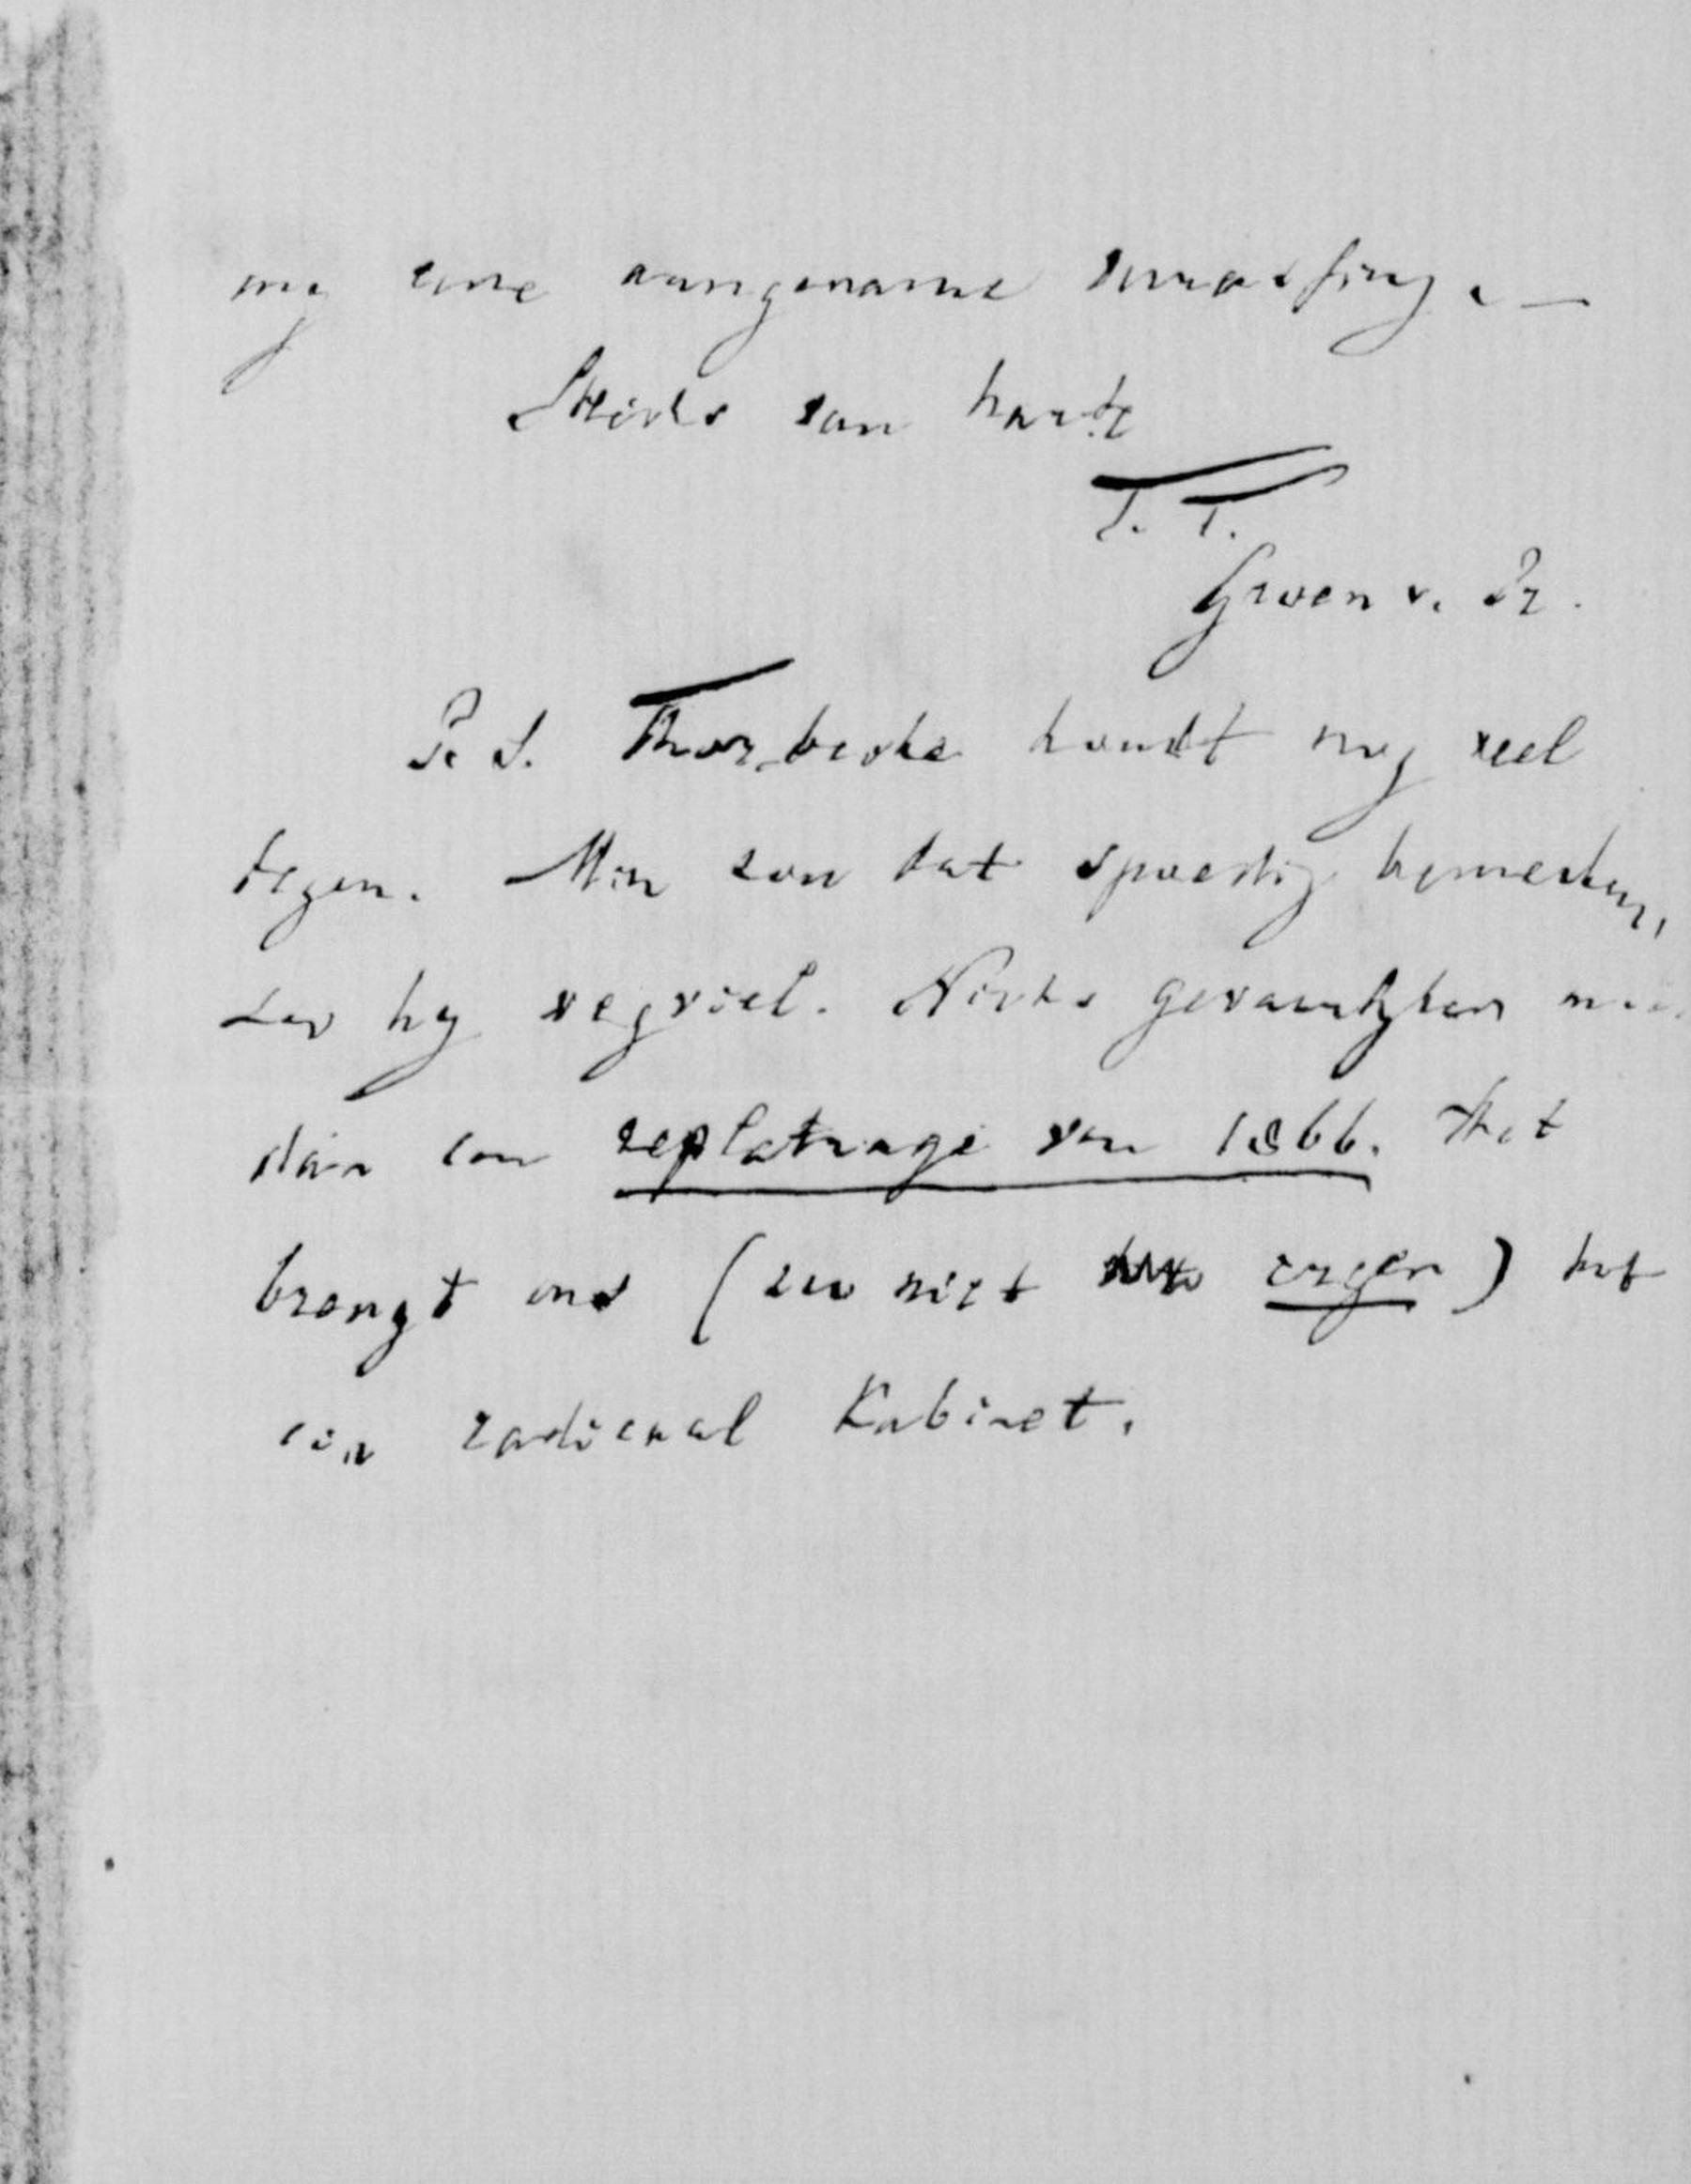 my eene aangename verrassing. —
Steeds van harte
T. T.
Groen v. Pr.
P. S. Thorbecke houdt nog veel
tegen. Men zou dat spoedig bemerken,
zoo hy wegviel. Niets gevaarlyker
dan een replatrage van 1866. Het
brengt ons (zoo niet erger) tot
een radicaal Kabinet.